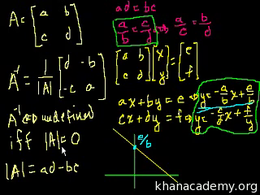 A = [a b
c d]
A⁻¹ = 1/|A| [d -b
-c a]
A⁻¹ undefined
iff |A|=0
|A| = ad-bc
ad = bc
a/b = c/d ⇒ a/c = b/d
[a b
c d] [x
y] = [e
f]
ax+by=e ⇒ y=-a/b x + e/b
cx+dy=f ⇒ y=-c/d x + f/d
e/b
khanacademy.org